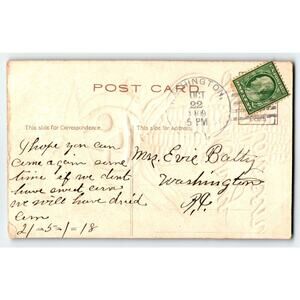 POST CARD
WASHINGTON,
OCT
22
5 PM
This side for Correspondence.
This side for Address.
I hope you can
come again some
time if we dont
have sweet corn
we will have dried
corn
21-5-1-18
Mrs. Evie Baltz
Washington
R.I.